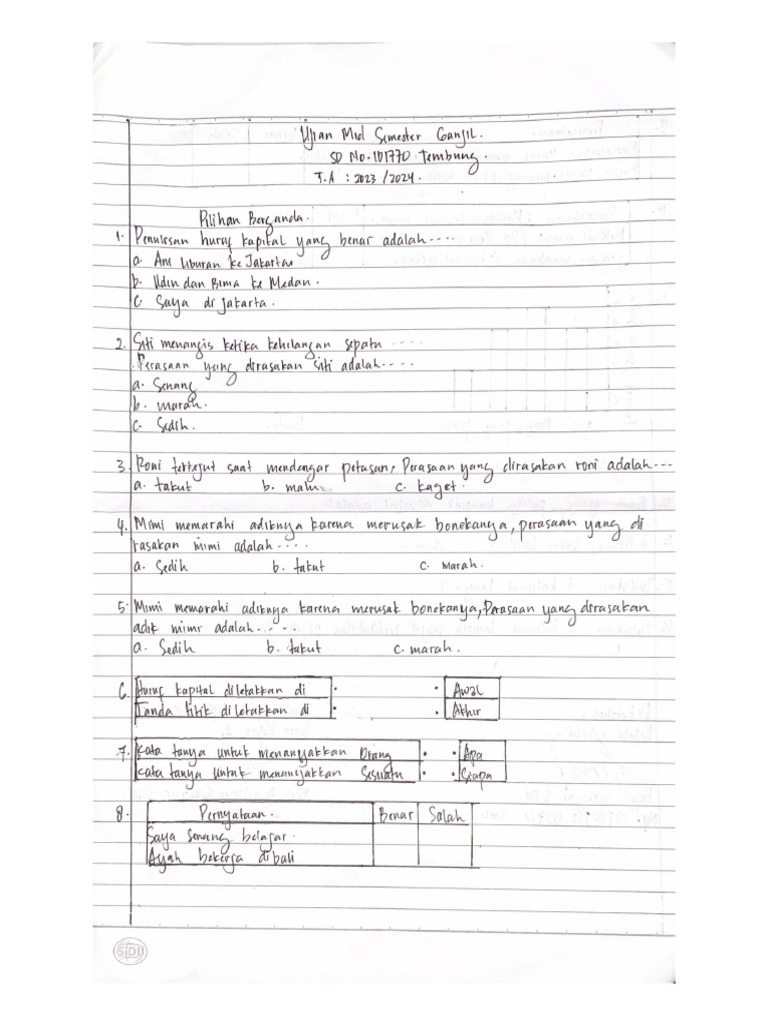 Ujian Mid Semester Ganjil.
SD No.101770 Tembung.
T.A : 2023/2024.
Pilihan Berganda.
1. Penulisan huruf kapital yang benar adalah ....
a. Ani liburan ke Jakarta
b. Udin dan Bima ke Medan.
c. Saya di jakarta.
2. Siti menangis ketika kehilangan sepatu ....
Perasaan yang dirasakan Siti adalah....
a. Senang
b. marah.
c. Sedih.
3. Roni terkejut saat mendengar petasan, Perasaan yang dirasakan roni adalah...
a. takut b. malu c. kaget.
4. Mimi memarahi adiknya karena merusak bonekanya, perasaan yang di
rasakan mimi adalah ....
a. Sedih b. takut c. marah.
5. Mimi memarahi adiknya karena merusak bonekanya, Perasaan yang dirasakan
adik mimi adalah.....
a. Sedih b. takut c. marah.
6. Huruf kapital diletakkan di . . Awal
Tanda titik diletakkan di . . Akhir
7. Kata tanya untuk menanyakkan Orang . . Apa
Kata tanya untuk menanyakkan Sesuatu . . Siapa
8. Pernyataan. Benar Salah
Saya senang belajar.
Ayah bekerja dibali
SiDU